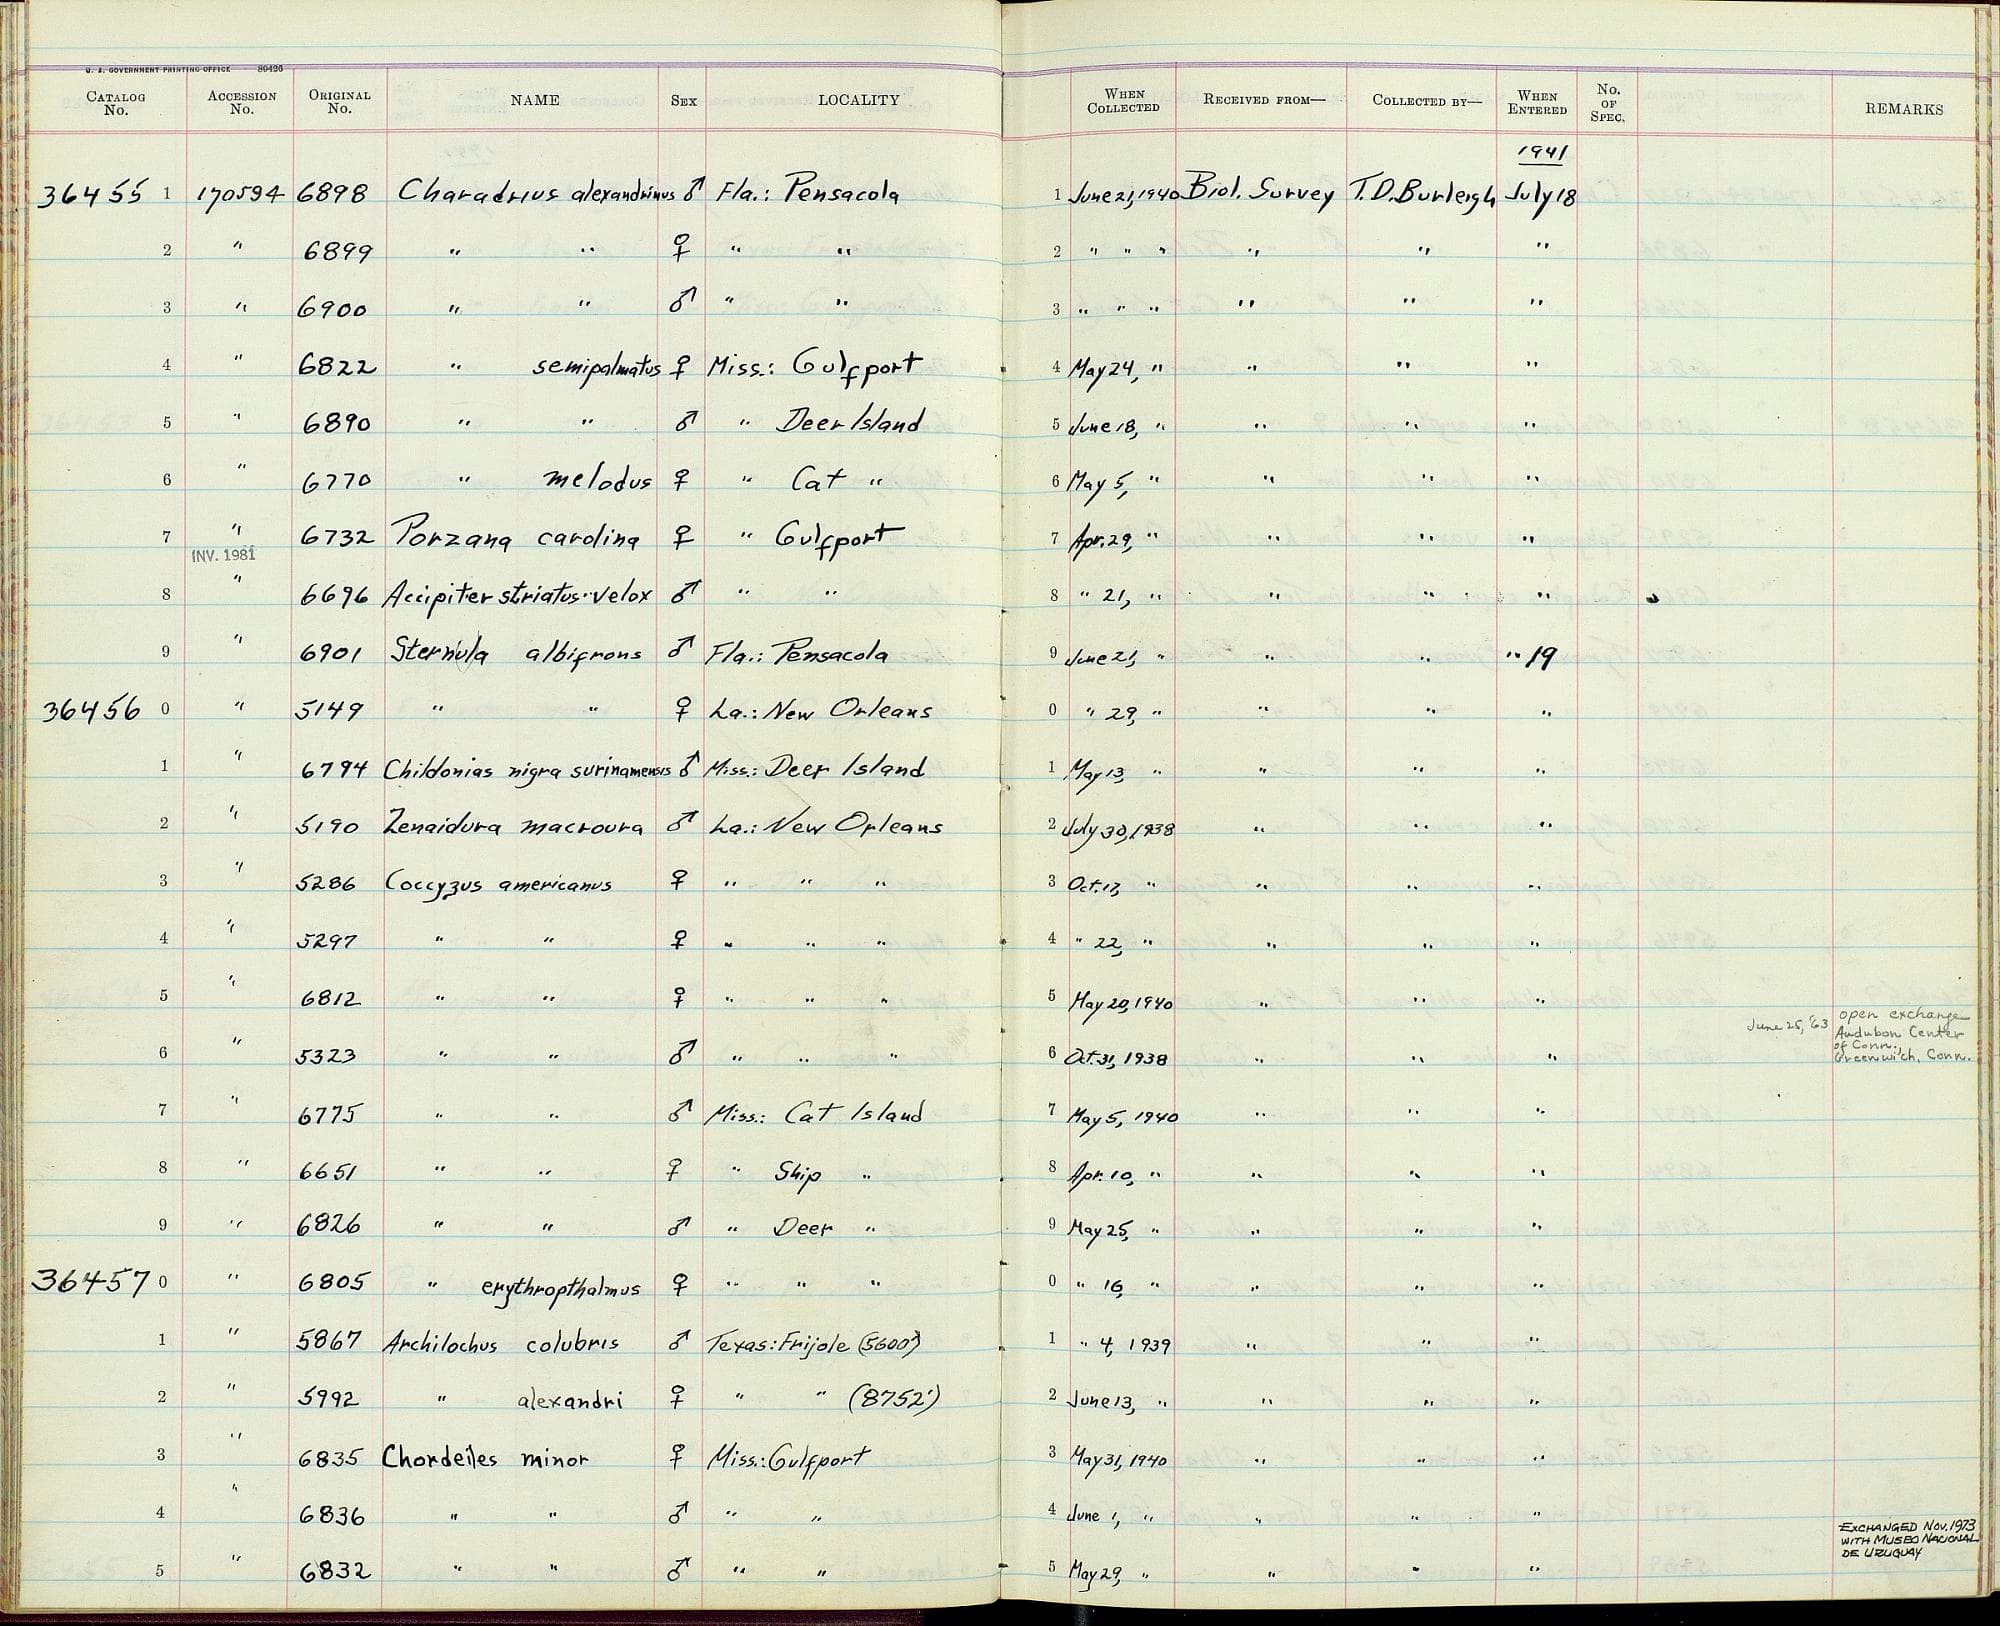 U. S. GOVERNMENT PRINTING OFFICE 89426
CATALOG No. ACCESSION No. ORIGINAL No. NAME SEX LOCALITY WHEN COLLECTED RECEIVED FROM— COLLECTED BY— WHEN ENTERED No. OF SPEC. REMARKS
1941
36455 1 170594 6898 Charadrius alexandrinus ♂ Fla.: Pensacola 1 June 21, 1940 Biol. Survey T.D. Burleigh July 18
2 " 6899 " " ♀ " " 2 " " " " " "
3 " 6900 " " ♂ " " 3 " " " " " "
4 " 6822 " semipalmatus ♀ Miss.: Gulfport 4 May 24, " " " "
5 " 6890 " " ♂ " Deer Island 5 June 18, " " " "
6 " 6770 " melodus ♀ " Cat " 6 May 5, " " " "
7 " 6732 Porzana carolina ♀ " Gulfport 7 Apr. 29, " " " "
INV. 1981
8 " 6696 Accipiter striatus velox ♂ " " 8 " 21, " " " "
9 " 6901 Sternula albifrons ♂ Fla.: Pensacola 9 June 21, " " " " 19
36456 0 " 5149 " " ♀ La.: New Orleans 0 " 29, " " " "
1 " 6794 Childonias nigra surinamensis ♂ Miss.: Deer Island 1 May 13, " " " "
2 " 5190 Zenaidura macroura ♂ La.: New Orleans 2 July 30, 1938 " " "
3 " 5286 Coccyzus americanus ♀ " " " 3 Oct. 17, " " " "
4 " 5297 " " ♀ " " " 4 " 22, " " " "
5 " 6812 " " ♀ " " " 5 May 20, 1940 " " "
6 " 5323 " " ♂ " " " 6 Oct. 31, 1938 " " " June 25, '63 open exchange
Audubon Center
of Conn.,
Greenwich, Conn.
7 " 6775 " " ♂ Miss.: Cat Island 7 May 5, 1940 " " "
8 " 6651 " " ♀ " Ship " 8 Apr. 10, " " " "
9 " 6826 " " ♂ " Deer " 9 May 25, " " " "
36457 0 " 6805 " erythropthalmus ♀ " " " 0 " 16, " " " "
1 " 5867 Archilochus colubris ♂ Texas: Frijole (5600') 1 " 4, 1939 " " "
2 " 5992 " alexandri ♀ " " (8752') 2 June 13, " " " "
3 " 6835 Chordeiles minor ♀ Miss.: Gulfport 3 May 31, 1940 " " "
4 " 6836 " " ♂ " " 4 June 1, " " " "
5 " 6832 " " ♂ " " 5 May 29, " " " " EXCHANGED NOV. 1973
WITH MUSEO NACIONAL
DE URUGUAY